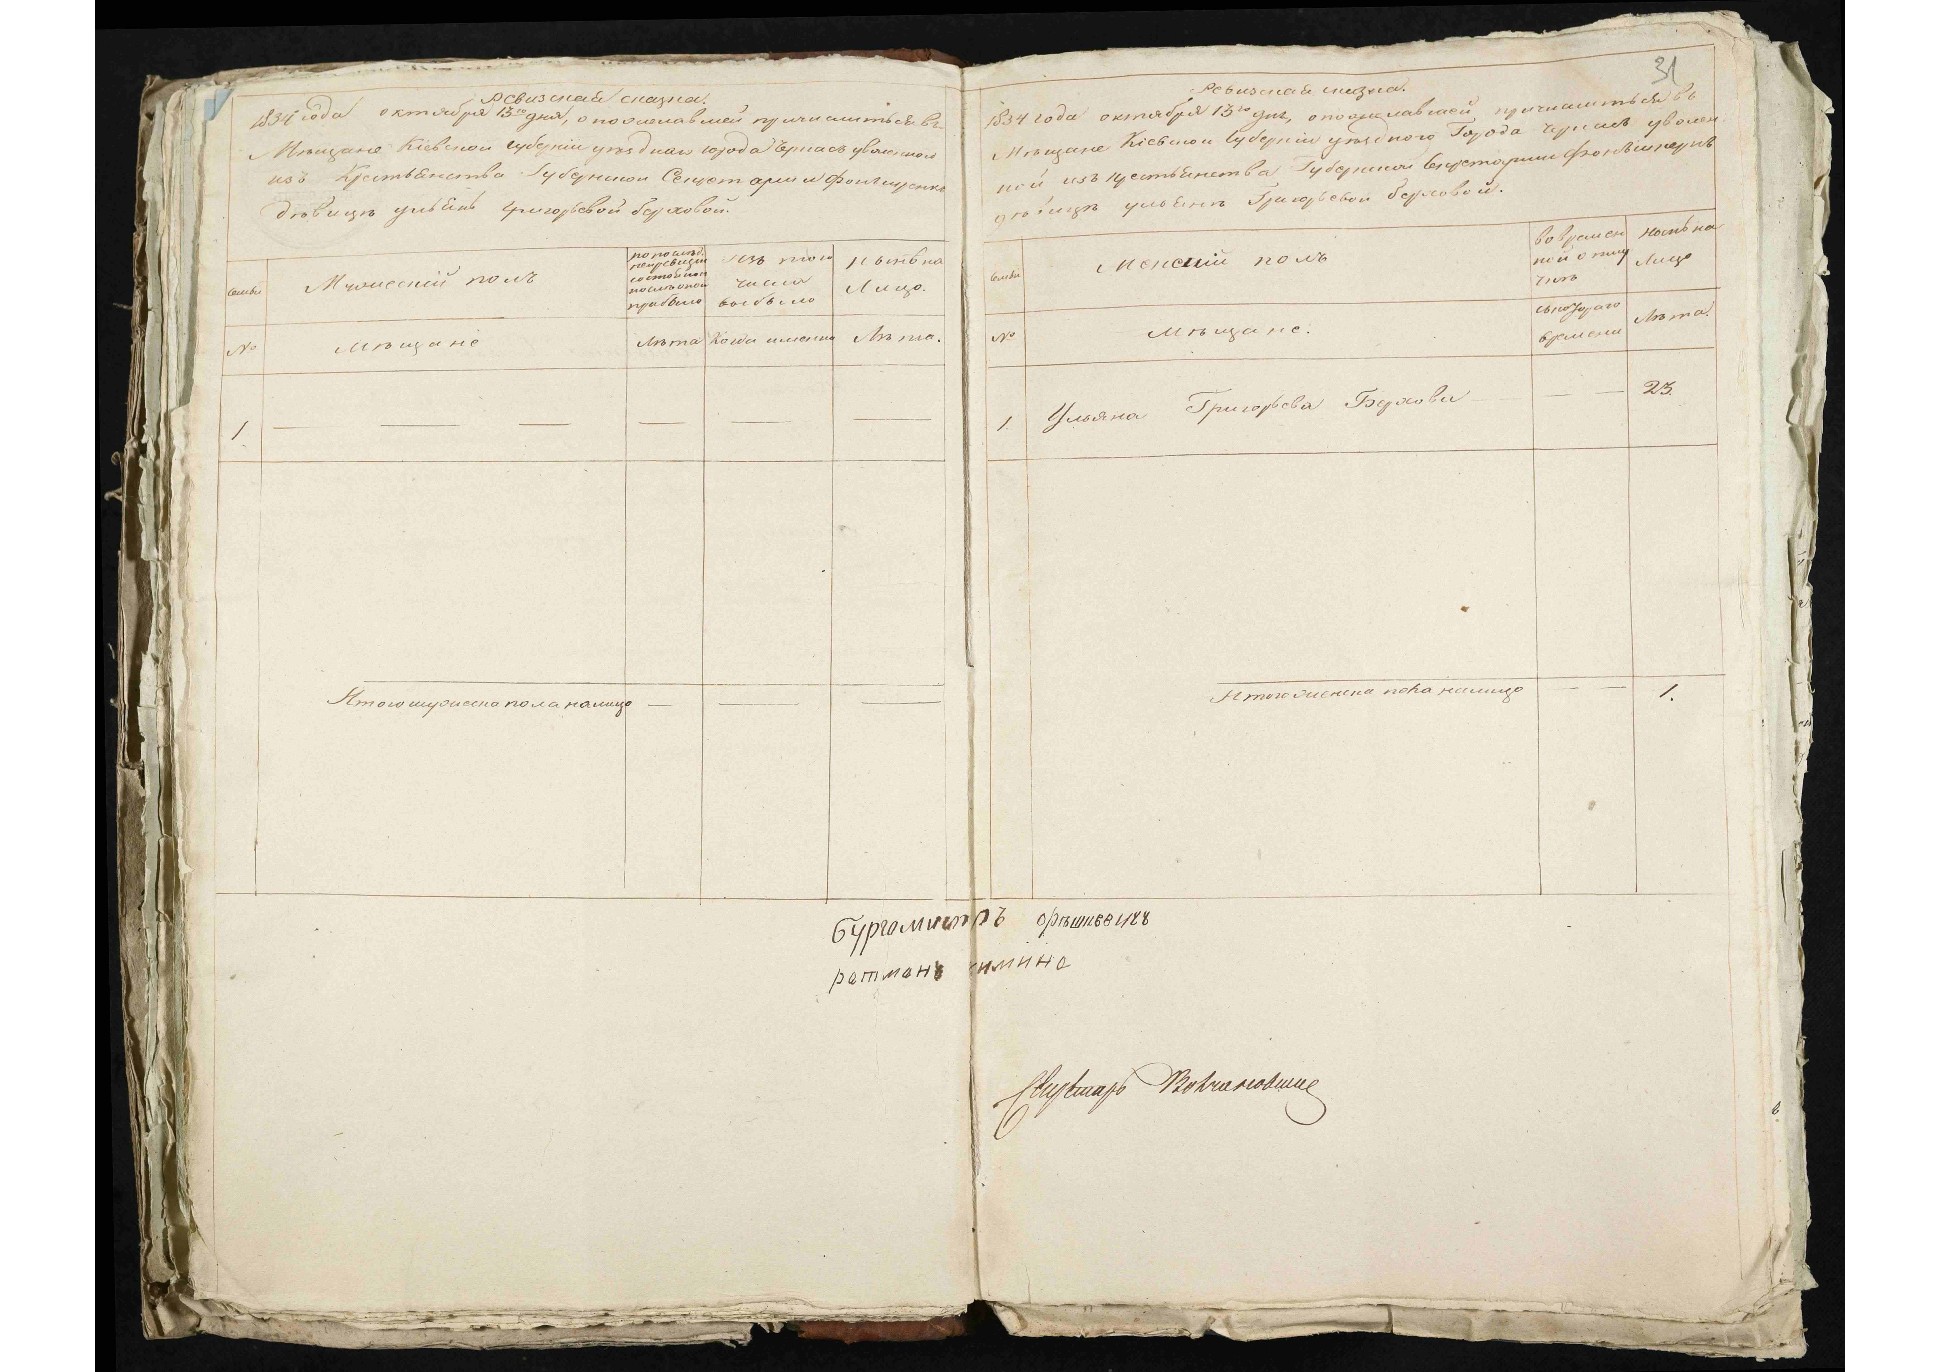 Ревизская сказка.
1834 года октября 13го дня, о пожелавшей причислиться въ
Мѣщане Кіевской Губерніи уѣзднаго города Черкасъ уволенной
изъ Крестьянства Губернской Секретарши
дѣвицѣ Ульянѣ Григорьевой Берховой.
Семьи
Мужескій полъ
Изъ того
числа
выбыло
Нынѣ на
Лицо.
№
Мѣщане
Лѣта
Когда именно
Лѣта.
1.
Итого мужеска пола на лицо
31
Ревизская сказка.
1834 года октября 13го дня, о пожелавшей причислиться въ
Мѣщане Кіевской Губерніи уѣзднаго Города Черкасъ уволен
ной изъ крестьянства Губернской Секретарши
дѣвицѣ Ульянѣ Григорьевой Берховой.
Семьи
Женский полъ
Во времен
ной отлуч
Нынѣ на
Лицо
№
Мѣщане.
съ котораго
времени
Лѣта.
1.
Ульяна Григорьева Берхова
23.
Итого женска пола на лицо
1.
Бургомистръ
ратманъ